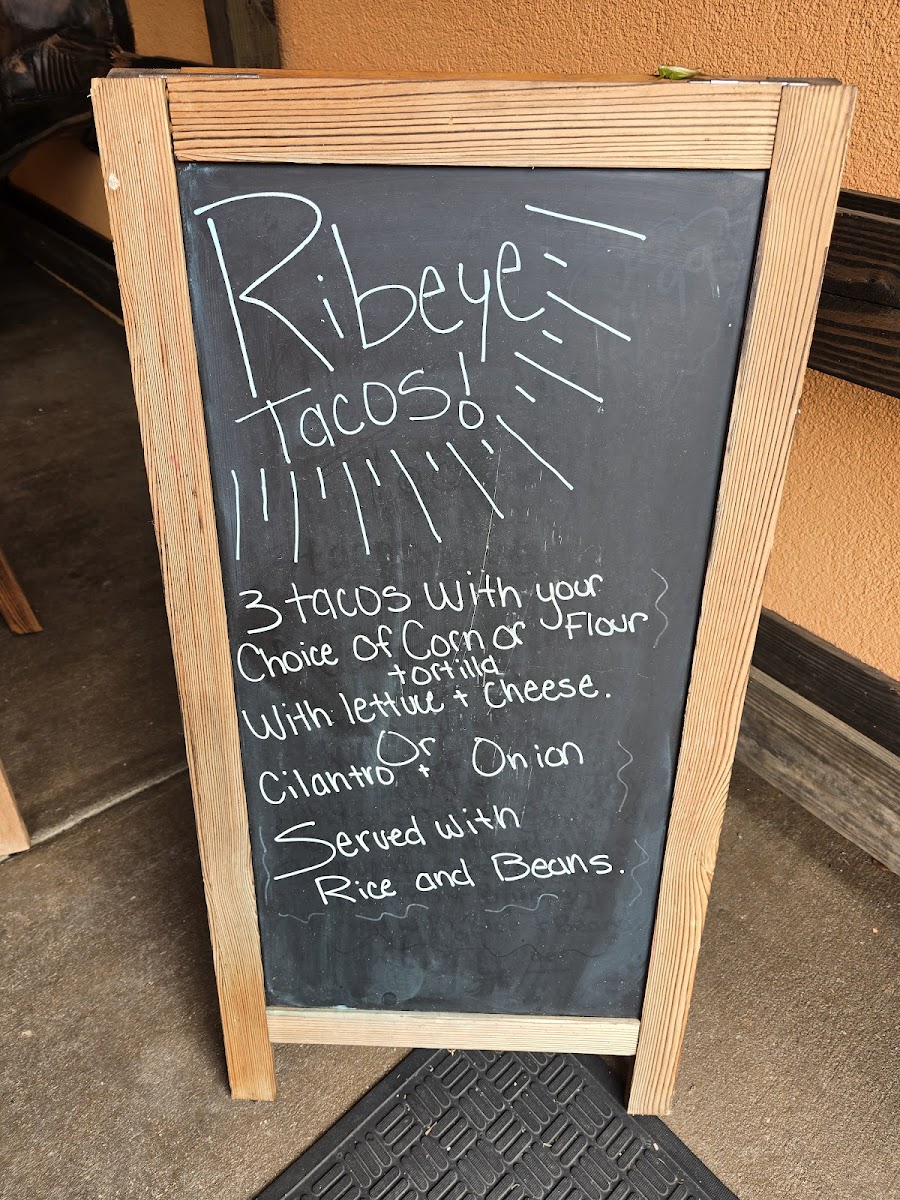 Ribeye
Tacos!
3 tacos with your
Choice of Corn or Flour
tortilla
With lettuce + cheese.
Or
Cilantro + Onion
Served with
Rice and Beans.